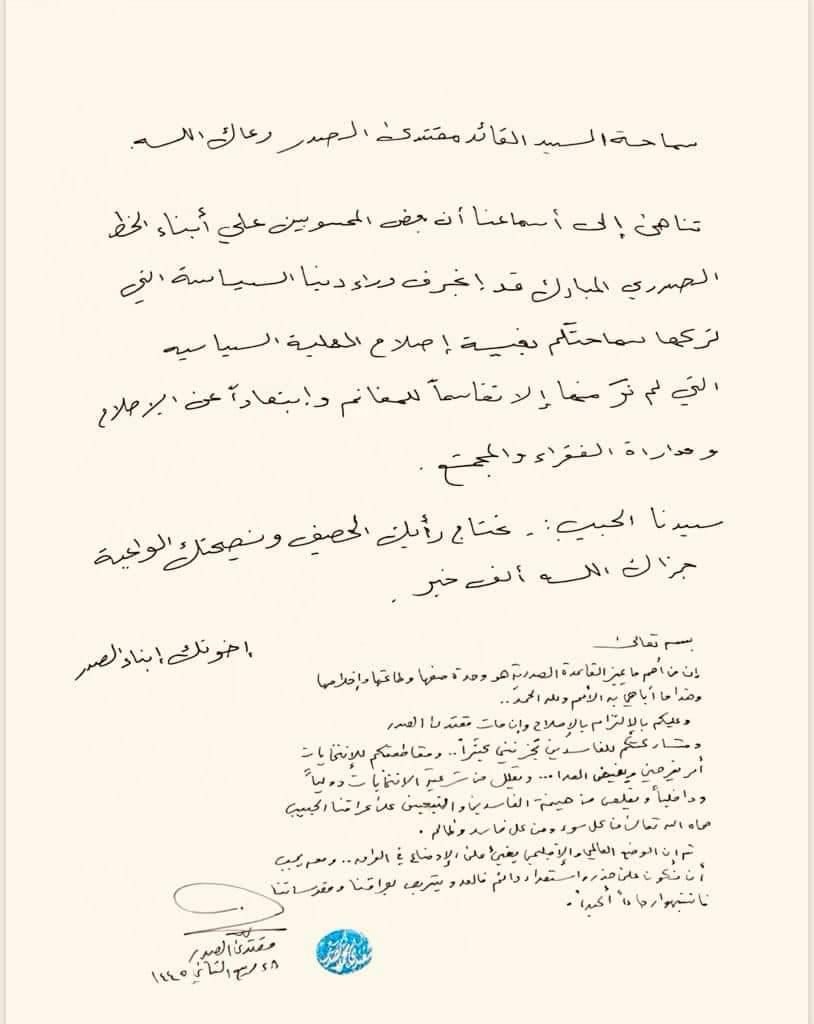 سماحة السيد القائد مقتدى الصدر رعاك الله.
تناهى إلى أسماعنا أن بعض المحسوبين على أبناء الخط
الصدري المبارك قد إنجرف وراء دنيا السياسة التي
تركها سماحتكم بغية إصلاح العملية السياسية
التي لم نرَ منها إلا تقاسماً للمغانم وإبتعاداً عن الإصلاح
ومداراة الفقراء والمجتمع.
سيدنا الحبيب: نحتاج رأيك الحصيف ونصيحتك الواعية
جزاك الله ألف خير.
إخوتك إبناء الصدر
بسمه تعالى
إن من أهم ما يميز القاعدة الصدرية هو وحدة صفها وطاعتها وإخلاصها
وهذا ما أباهي به الأمم ولله الحمد..
وعليكم بالإلتزام بالإصلاح وإن مات مقتدى الصدر
ومشاركتكم للفاسدين تحزنني كثيراً.. ومقاطعتكم للإنتخابات
أمر يفرحني ويغيض العدا... ويقلل من شرعية الانتخابات دولياً
وداخلياً ويقلص من هيمنة الفاسدين والتبعيين على عراقنا الحبيب
حماه الله تعالى من كل سوء ومن كل فاسد وظالم.
ثم إن الوضع العالمي والإقليمي يؤثر على الاوضاع في العراق.. ومعه يجب
أن نكون على حذر وإستعداد دائم فالعدو يتربص بعراقنا ومقدساتنا
فانتبهوا رجاءاً أكيداً.
مقتدى الصدر
٢٨ ربيع الثاني ١٤٤٥